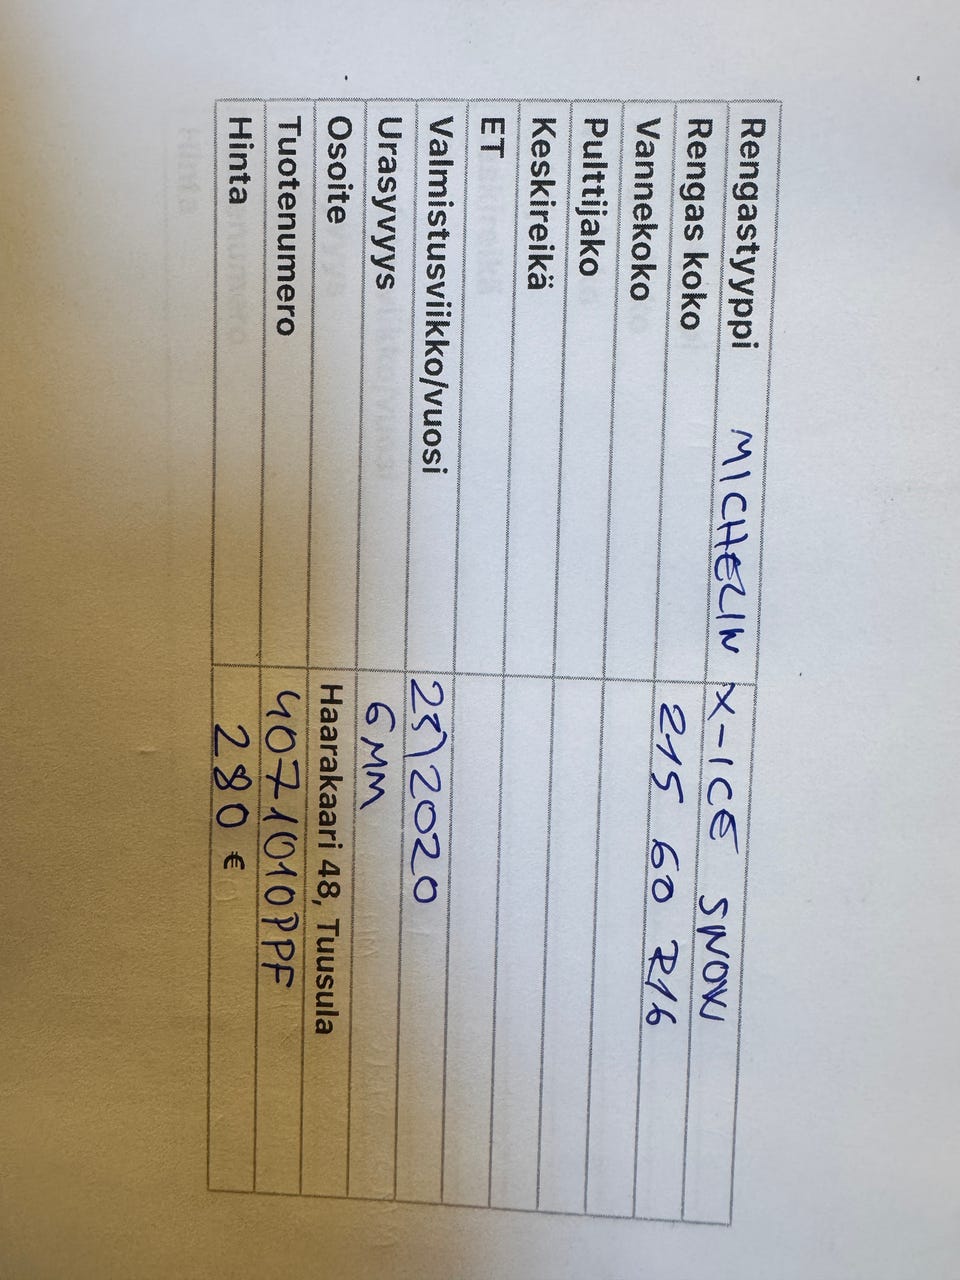 Rengastyyppi MICHELIN X-ICE SNOW
Rengas koko 215 60 R16
Vannekoko
Pulttijako
Keskireikä
ET
Valmistusviikko/vuosi 23/2020
Urasyvyys 6 MM
Osoite Haarakaari 48, Tuusula
Tuotenumero 4071010PPF
Hinta 280 €